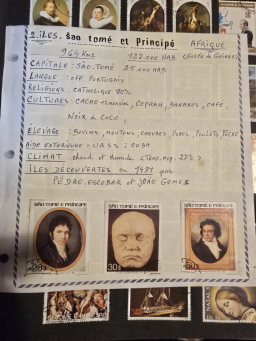 2. ILES. São tomé et Principé AFRIQUE
964 Km2 122.000 HAB (Golfe de Guinée)
CAPITALE : SÃO-TOMÉ 25.000 HAB
LANGUE : OFF PORTUGAIS
RELIGIENS : CATHOLIQUE 80%
CULTURES : CACAO, COPRAH, BANANES, CAFE,
NOIX de COCO,
ELEVAGE : BOVINS, MOUTONS, CHEVRES, PORCS, POULETS, PÊCHE
AIDE EXTERIEURE : URSS : CUBA
CLIMAT chaud et Humide (Temp. moy. 27°c)
ILES DECOUVERTES en 1471 par
PEDRO. ESCOBAR et JOAO GOMES
SÃO TOMÉ E PRÍNCIPE SÃO TOMÉ E PRÍNCIPE SÃO TOMÉ E PRÍNCIPE
20s 30s